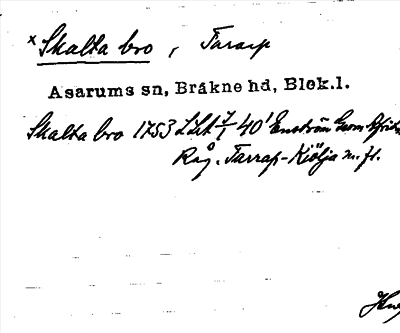 x Skalta bro, Tararp
Asarums sn, Bräkne hd, Blek.l.
Skalta bro 1753 LSA 7/1 40' Enström Geom.
Rå. Tararp-Kiölja m.fl.